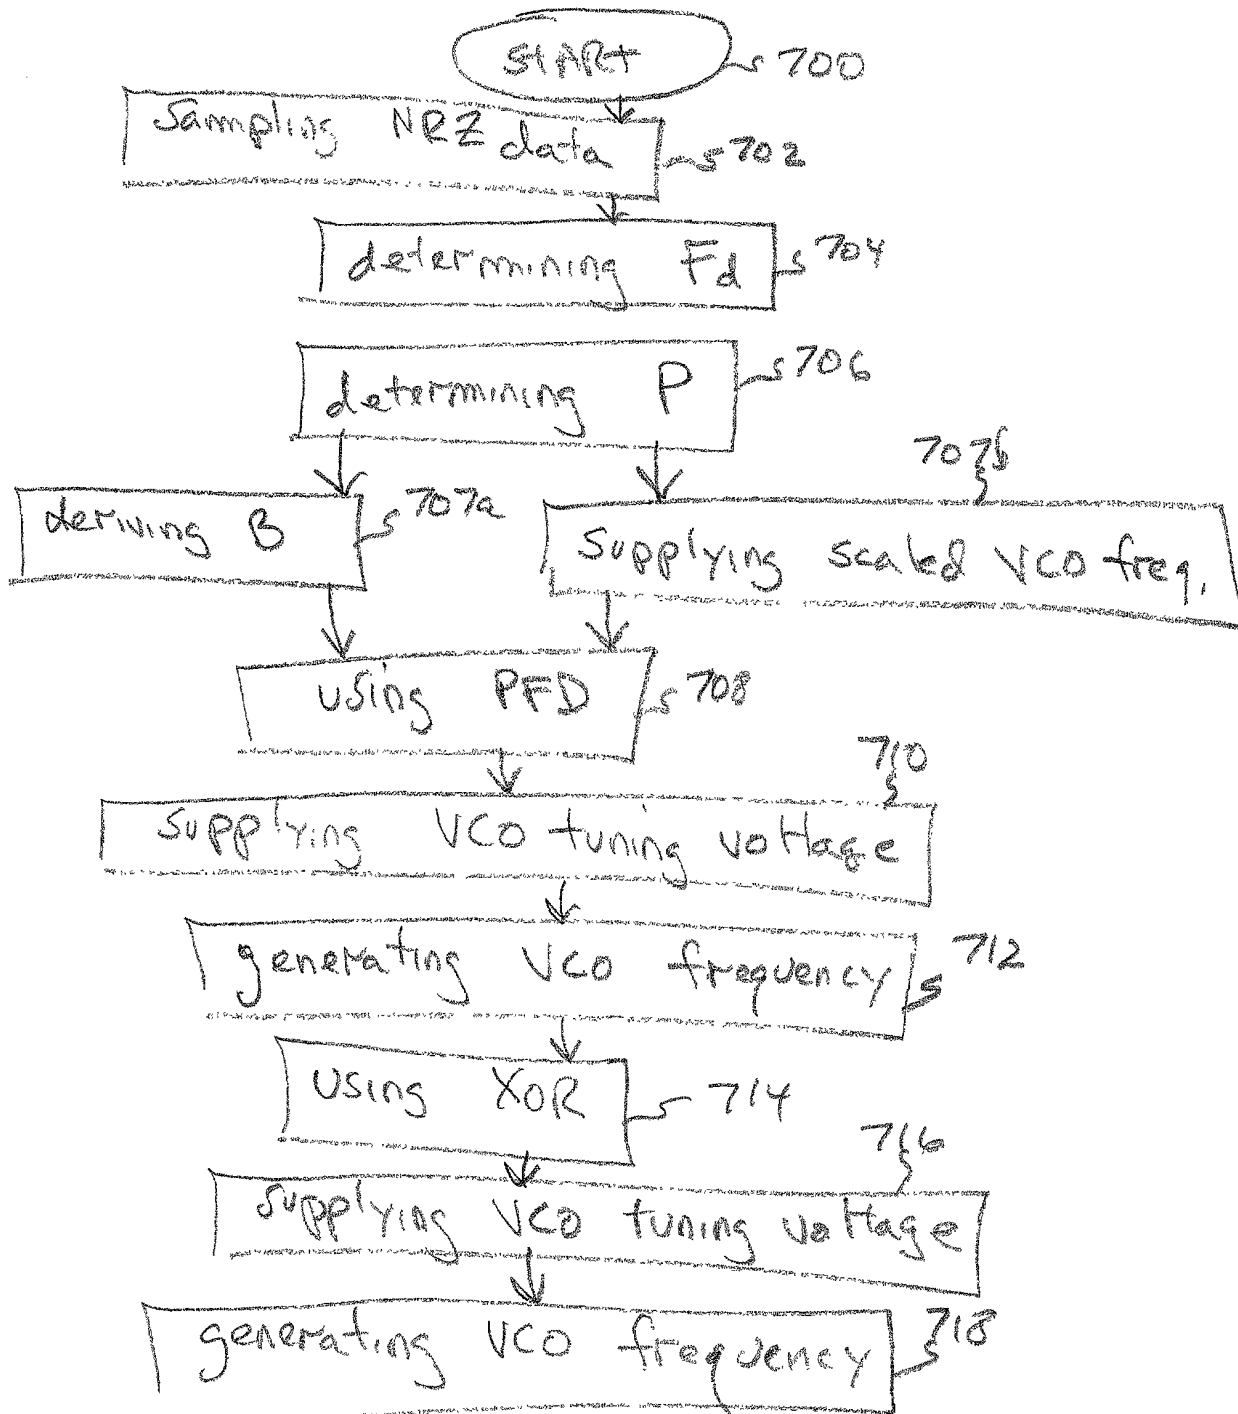 START 700
Sampling NRZ data 702
determining Fd 704
determining P 706
707b
deriving B 707a
Supplying scaled VCO freq.
using PFD 708
710
supplying VCO tuning voltage
generating VCO frequency 712
using XOR 714
716
supplying VCO tuning voltage
generating VCO frequency 718